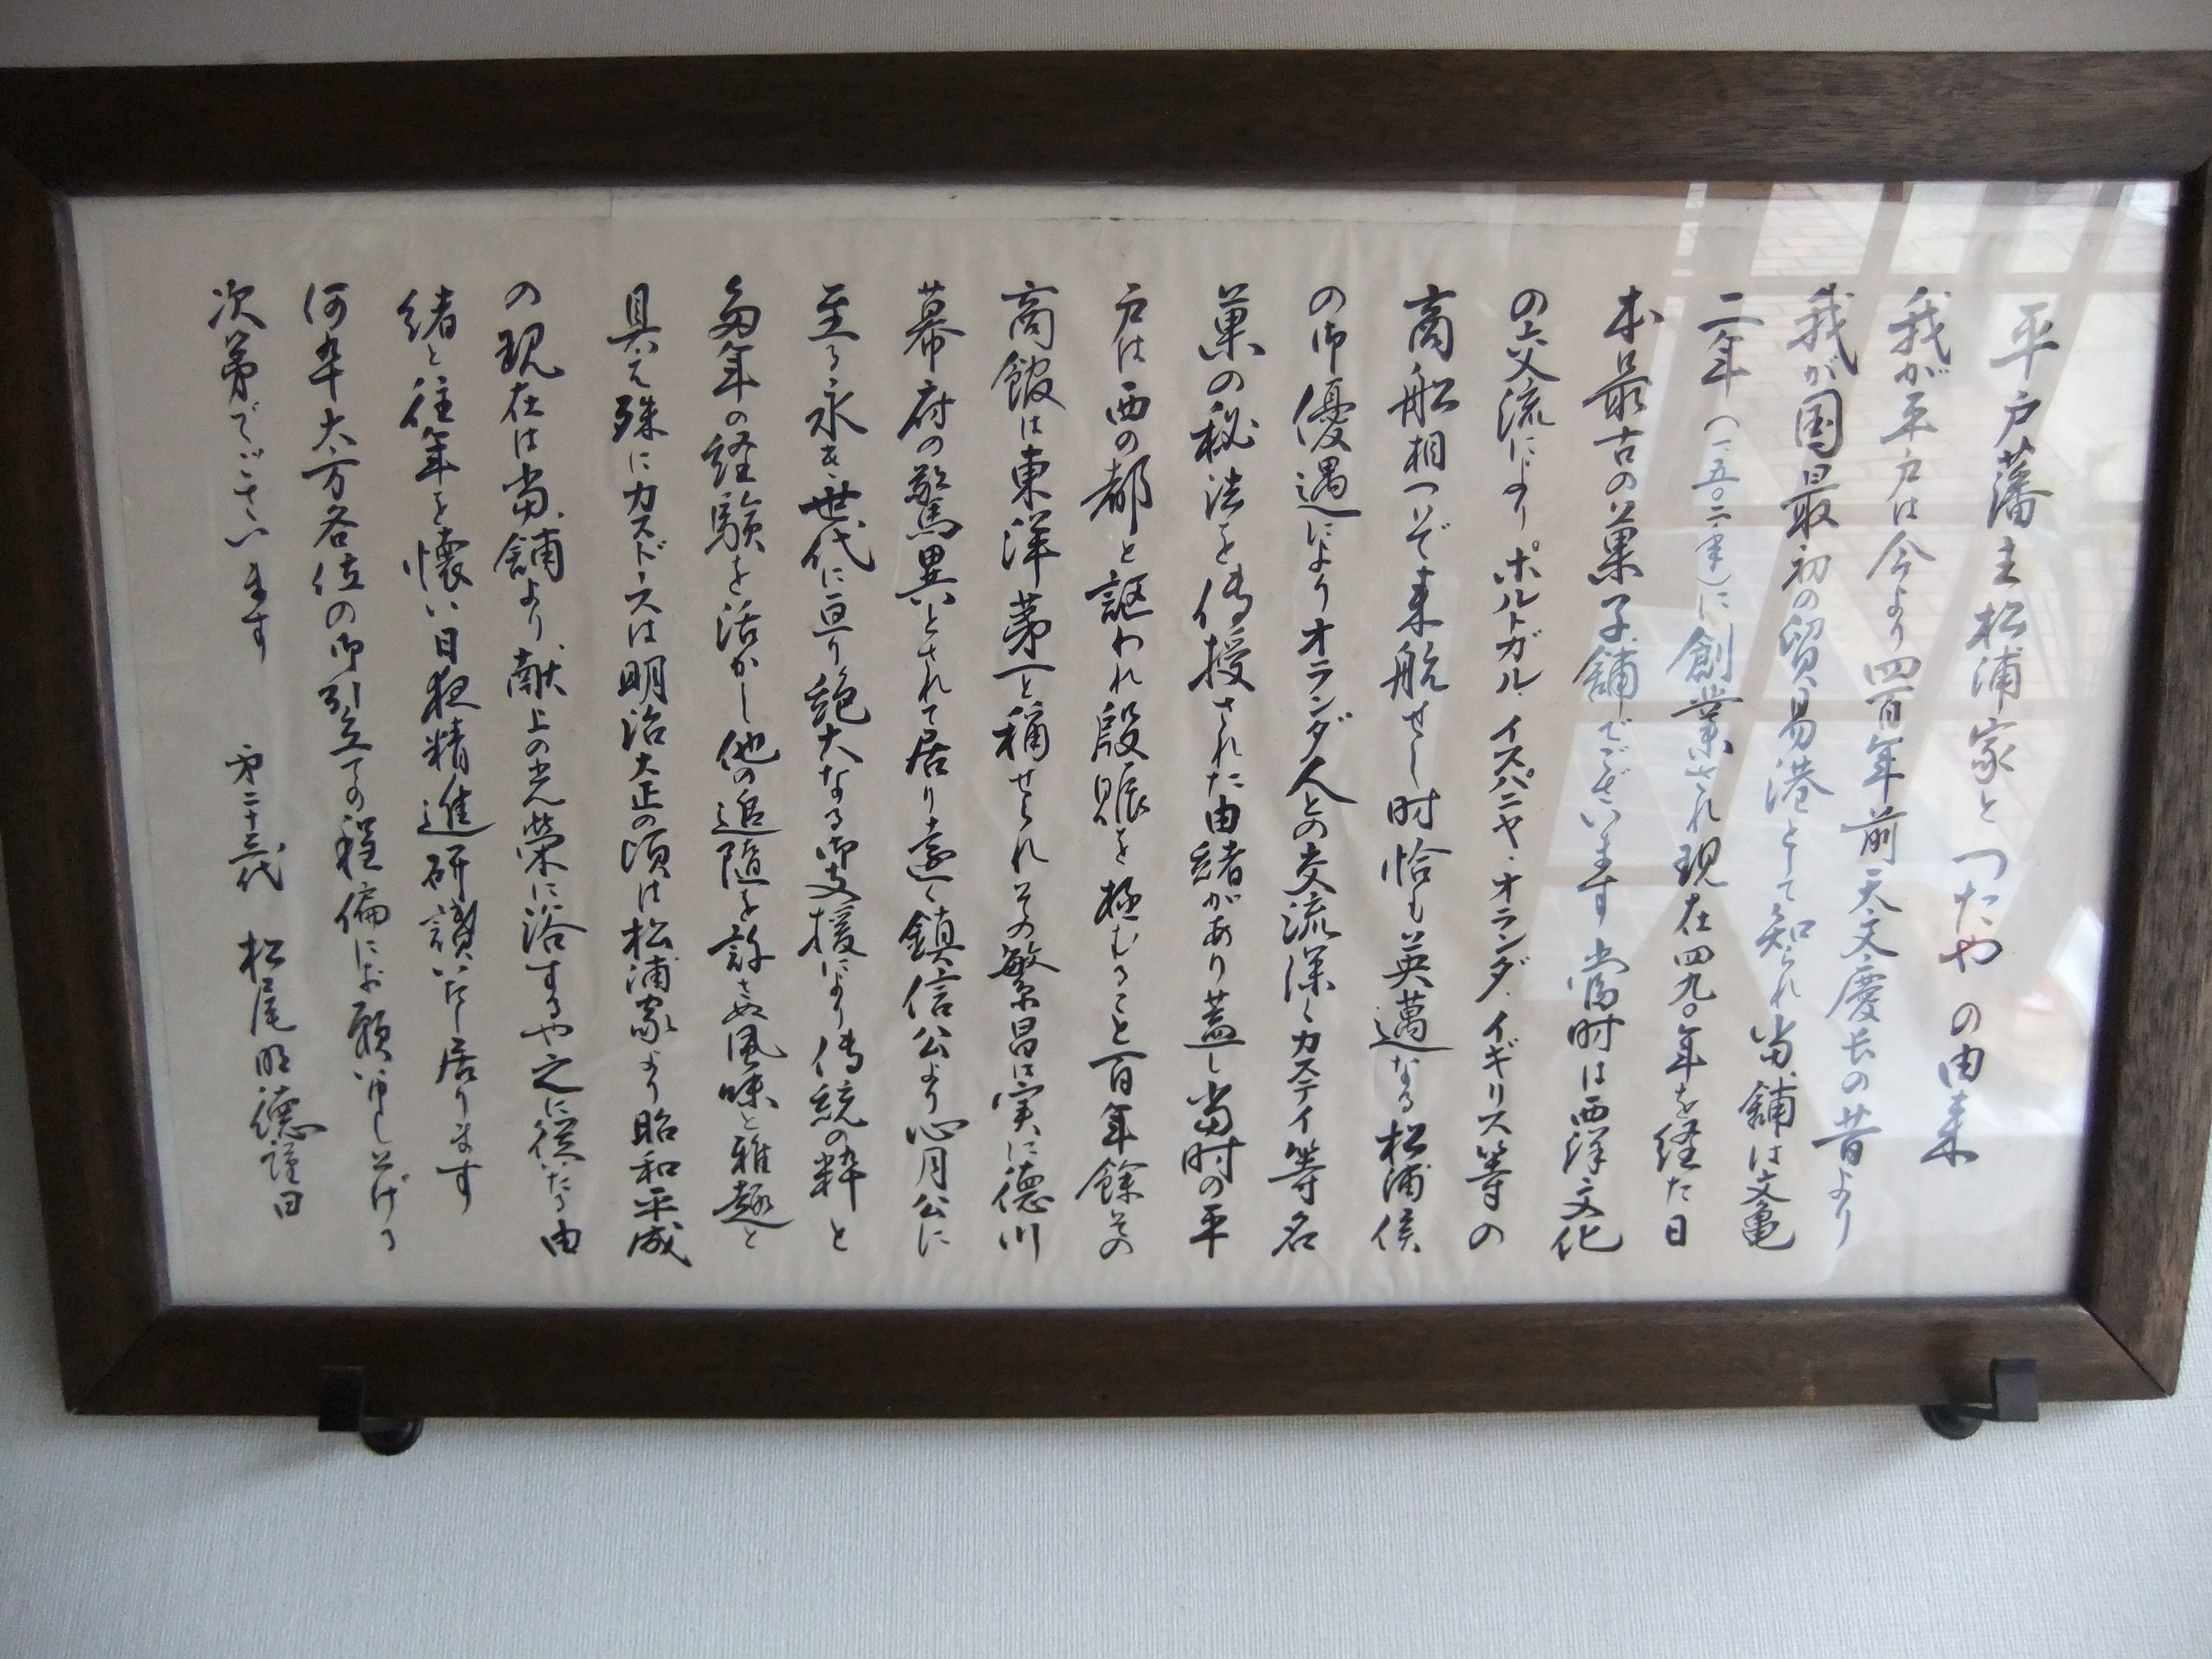 平戸藩主松浦家とつたやの由来
我が平戸は今より四百年前天文慶長の昔より
我が国最初の貿易港として知られ当舗は文亀
二年(一五〇二年)に創業され現在四九〇年を経た日
本最古の菓子舗でございます當时は西洋文化
の交流によりポルトガル.イスパニヤ.オランダ.イギリス等の
商船相ついで来航せし时恰も英邁なる松浦侯
の御優遇によりオランダ人との交流深くカステイ等名
菓の秘法を傳授された由緒があり蓋し当时の平
戸は西の都と謳われ殷賑を極むること百年餘その
商舘は東洋第一と稱せられその繁昌は実に德川
幕府の驚異とされて居り遠く鎮信公より心月公に
至る永き世代に亘り絶大なる御支援により傳統の粋と
多年の経験を活かし他の追随を許さぬ風味と雅趣と
具え殊にカスドースは明治大正の頃は松浦家より昭和平成
の現在は当舗より献上の光栄に浴するや之に從いたる由
緒と往年を懐い日夜精進研讃いたし居ります
何卆大方各位の御引立ての程偏にお願い申し上げる
次第でございます 第二十三代 松尾明德謹曰